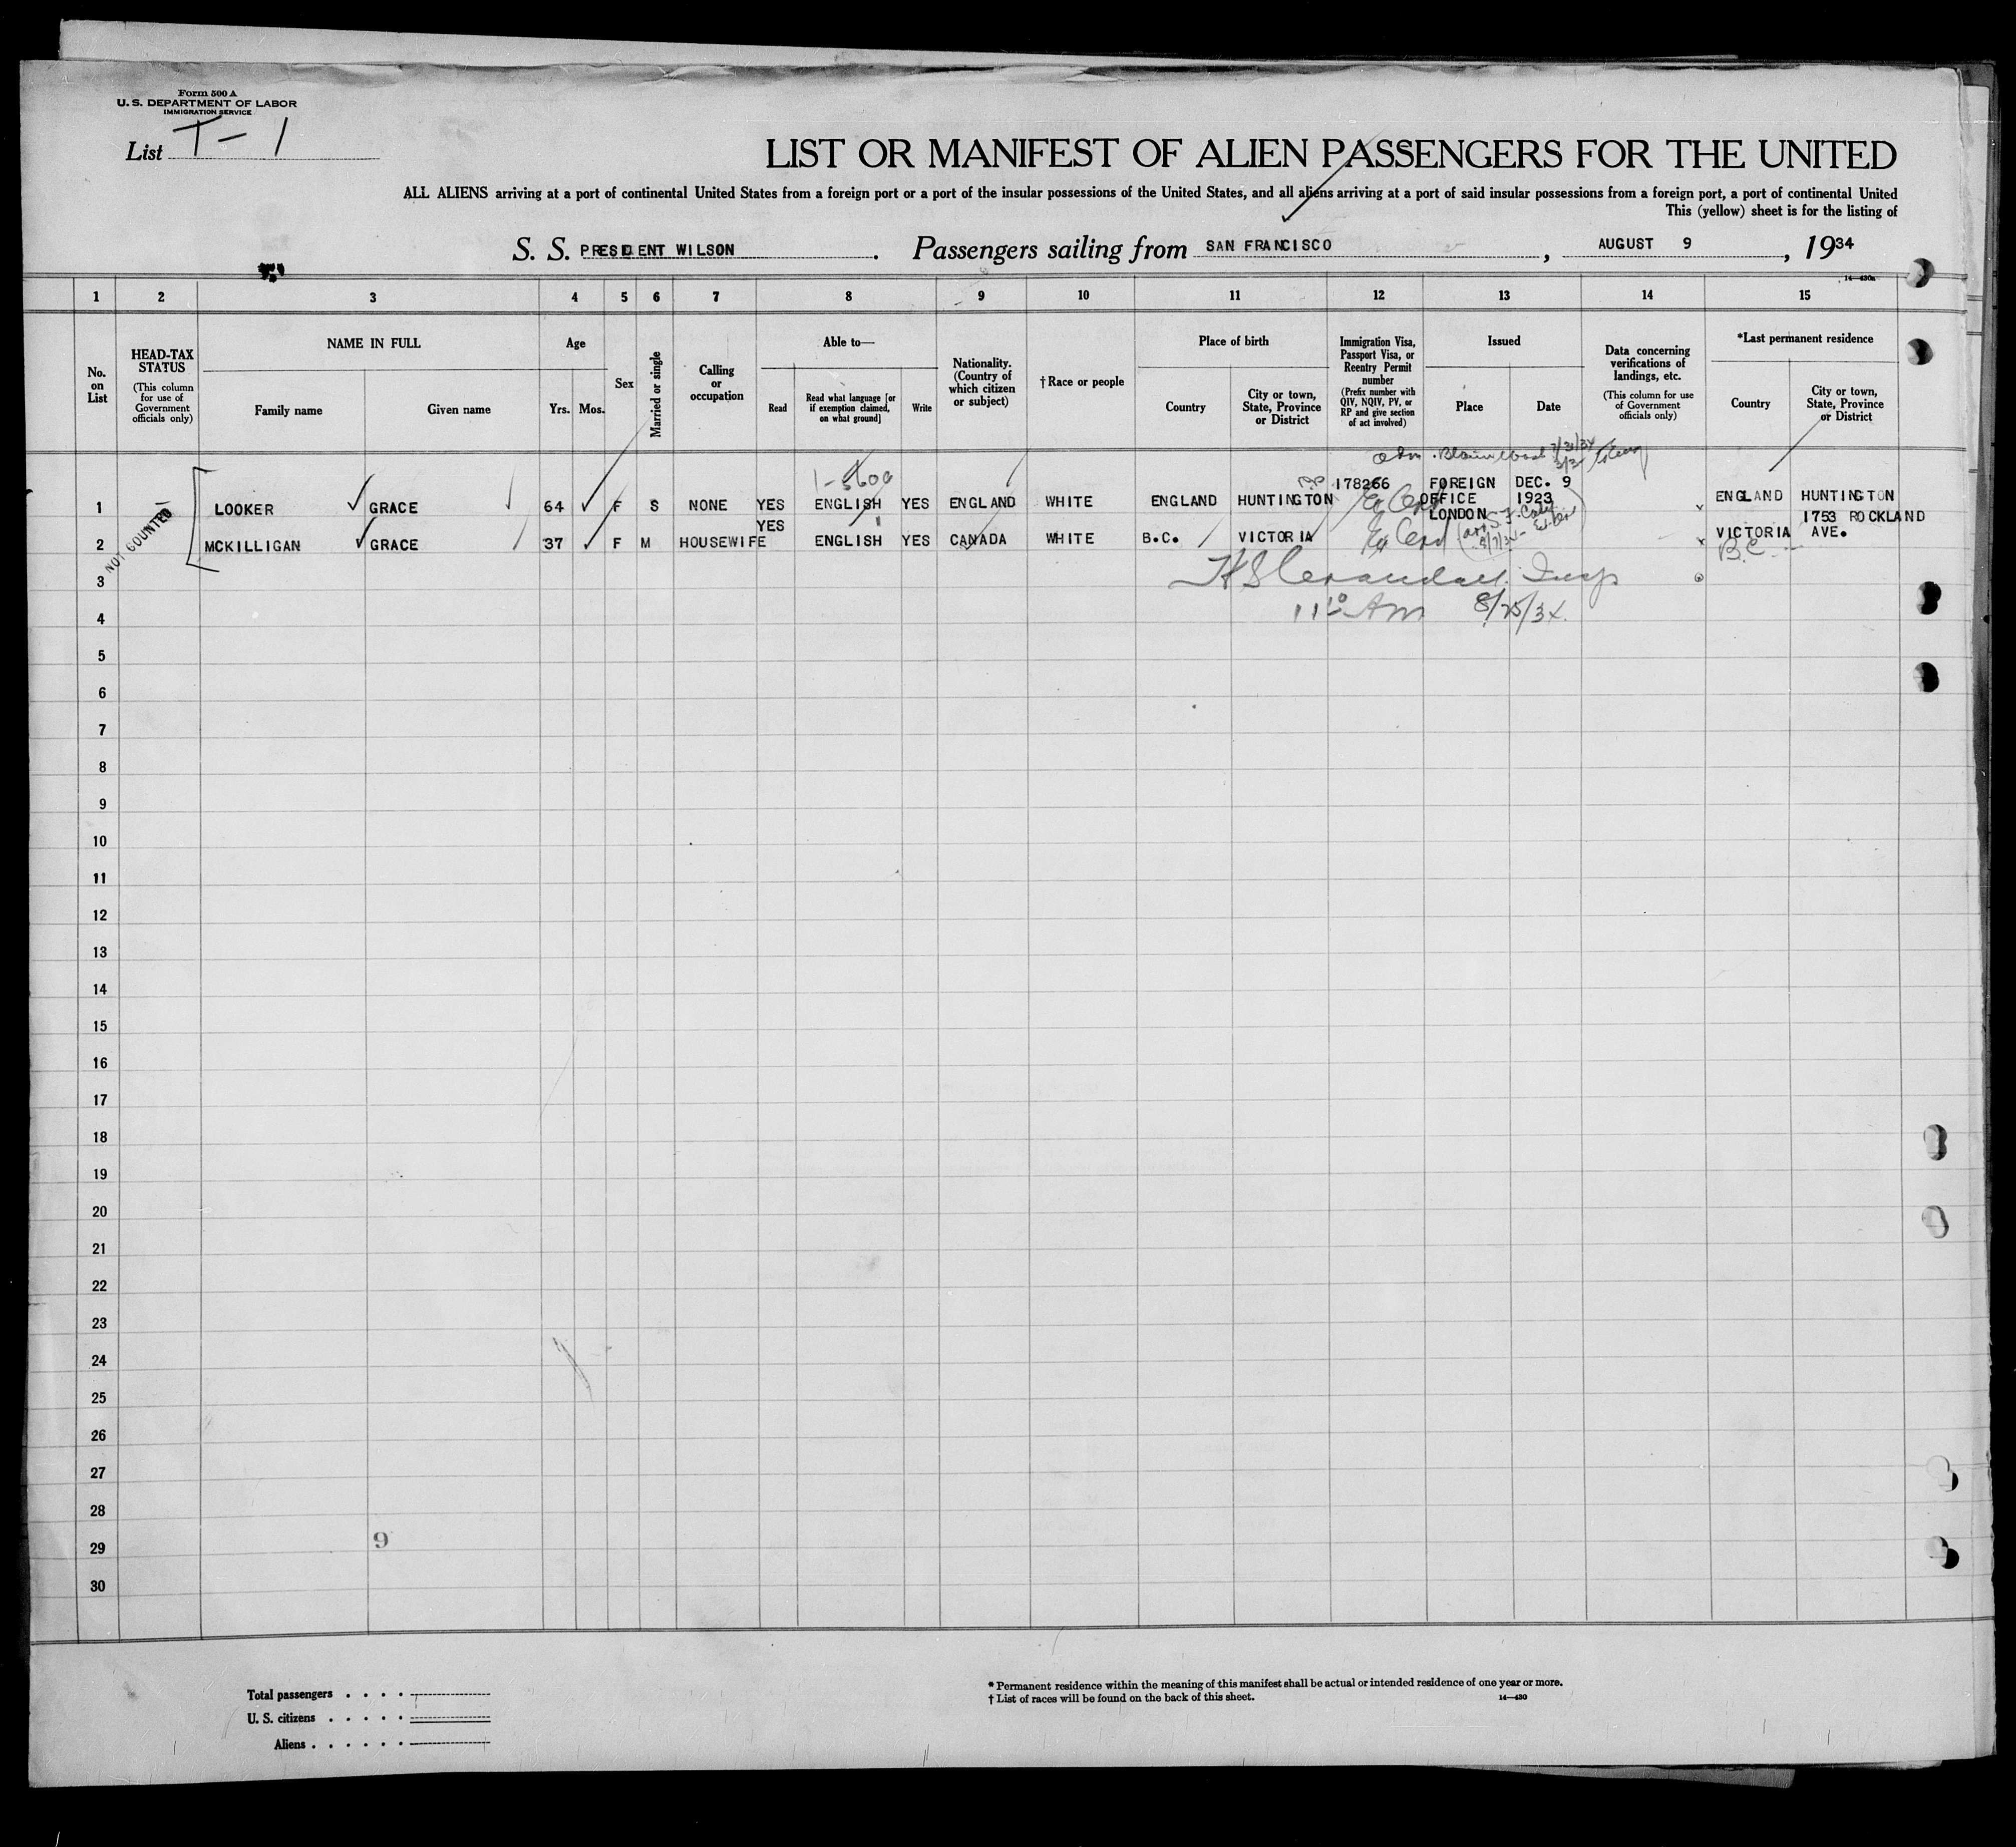 Form 500 A
U. S. DEPARTMENT OF LABOR
IMMIGRATION SERVICE
List T-1
LIST OR MANIFEST OF ALIEN PASSENGERS FOR THE UNITED
ALL ALIENS arriving at a port of continental United States from a foreign port or a port of the insular possessions of the United States, and all aliens arriving at a port of said insular possessions from a foreign port, a port of continental United
This (yellow) sheet is for the listing of
S. S. PRESIDENT WILSON . Passengers sailing from SAN FRANCISCO , AUGUST 9 , 1934
14—430a
1 2 3 4 5 6 7 8 9 10 11 12 13 14 15
No. on List
HEAD-TAX STATUS
(This column for use of Government officials only)
NAME IN FULL
Family name
Given name
Age
Yrs. Mos.
Sex
Married or single
Calling or occupation
Able to—
Read
Read what language [or if exemption claimed, on what ground]
Write
Nationality. (Country of which citizen or subject)
† Race or people
Place of birth
Country
City or town, State, Province or District
Immigration Visa, Passport Visa, or Reentry Permit number
(Prefix number with QIV, NQIV, PV, or RP and give section of act involved)
Issued
Place
Date
Data concerning verifications of landings, etc.
(This column for use of Government officials only)
*Last permanent residence
Country
City or town, State, Province or District
NOT COUNTED
1 LOOKER GRACE 64 F S NONE YES ENGLISH YES ENGLAND WHITE ENGLAND HUNTINGTON 178266 FOREIGN OFFICE LONDON DEC. 9 1923 ENGLAND HUNTINGTON
2 MCKILLIGAN GRACE 37 F M HOUSEWIFE YES ENGLISH YES CANADA WHITE B.C. VICTORIA VICTORIA B.C. 1753 ROCKLAND AVE.
3
11 10 AM 8/25/34
4
5
6
7
8
9
10
11
12
13
14
15
16
17
18
19
20
21
22
23
24
25
26
27
28
29
9
30
Total passengers . . . .
U. S. citizens . . . . .
Aliens . . . . . .
* Permanent residence within the meaning of this manifest shall be actual or intended residence of one year or more.
† List of races will be found on the back of this sheet.
14—430